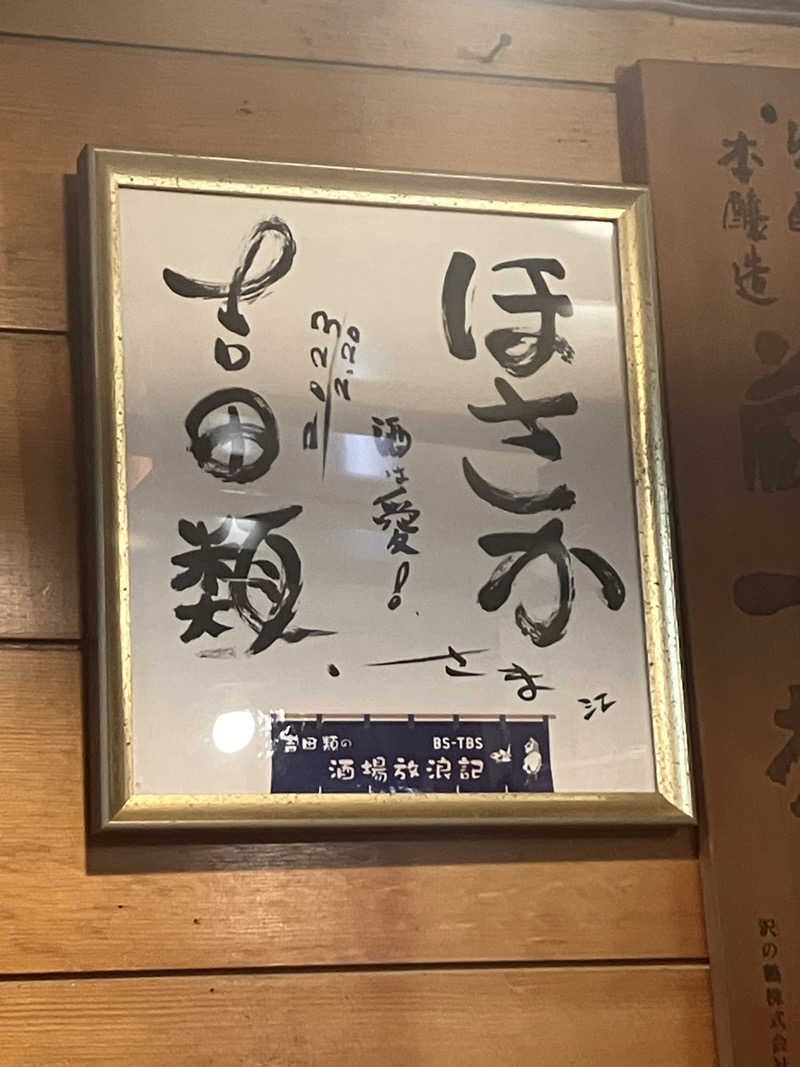 ほさか
さま
江
酒は愛!
2023
2.20
吉田類
吉田類の
BS-TBS
酒場放浪記
本醸造
沢の鶴株式会社